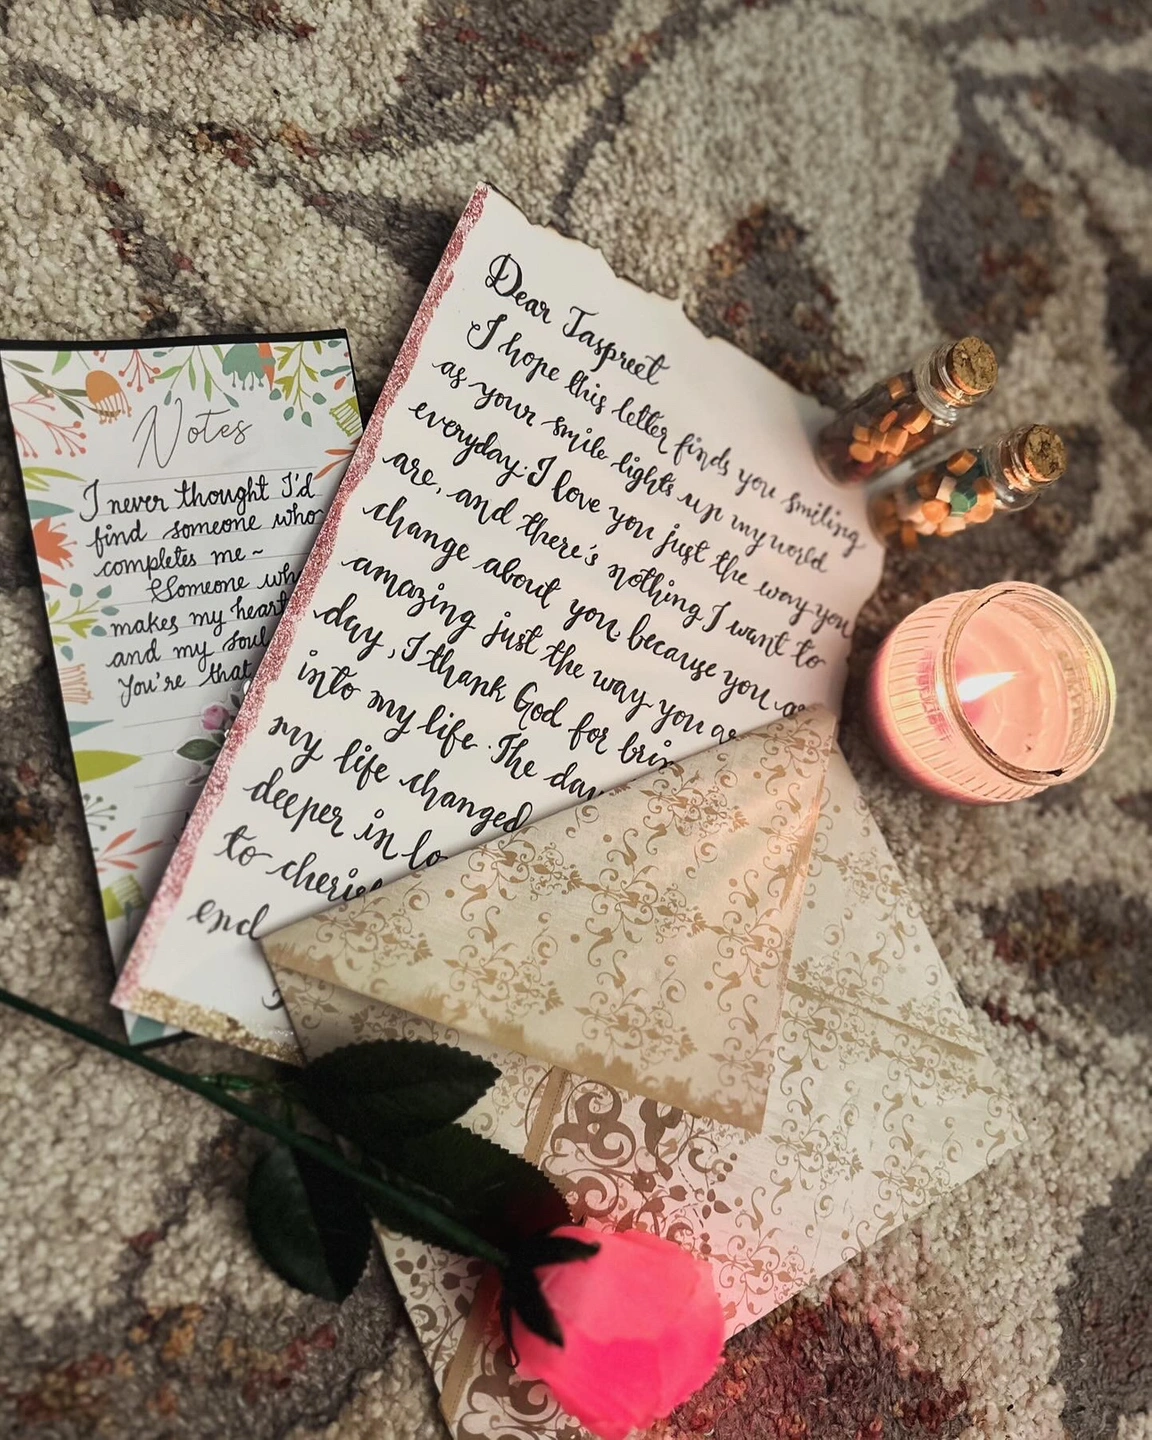 Notes
I never thought I'd
find someone who
completes me ~
Someone
makes my heart
and my soul
You're that
Dear Taspreet
I hope this letter finds you smiling
as your smile lights up my world
everyday. I love you just the way you
are, and there's nothing I want to
change about you, because you
amazing just the way you
day, I thank God for
into my life. The
my life changed
deeper in
to
end